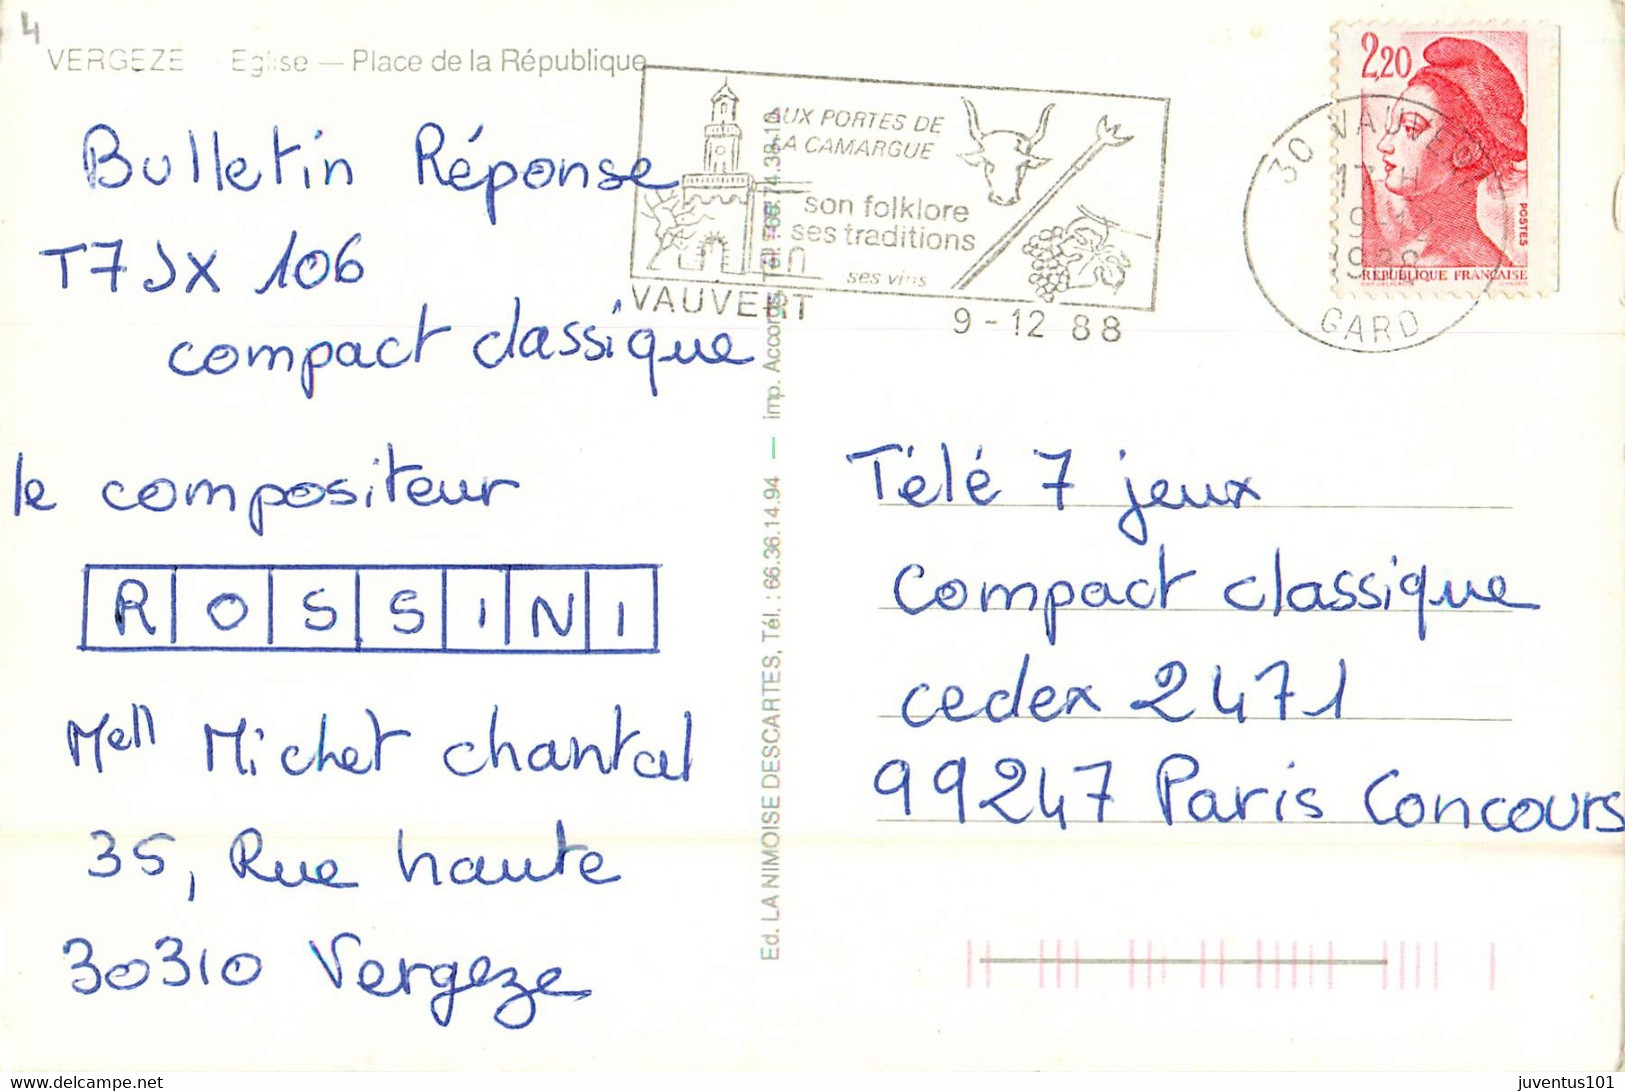 4
VERGEZE Eglise — Place de la République
Bulletin Réponse
T7JX 106
compact classique
le compositeur
ROSSINI
Mell Michet chantal
35, Rue haute
30310 Vergeze
AUX PORTES DE
LA CAMARGUE
son folklore
ses traditions
ses vins
VAUVERT
9-12 88
30 VAUVERT
17 H
9-12
1988
GARD
2,20
POSTES
REPUBLIQUE FRANÇAISE
Ed. LA NIMOISE DESCARTES, Tél. : 66.36.14.94 — imp. Accords, Tél.
Télé 7 jeux
compact classique
cedex 2471
99247 Paris Concours
delcampe.net
juventus101